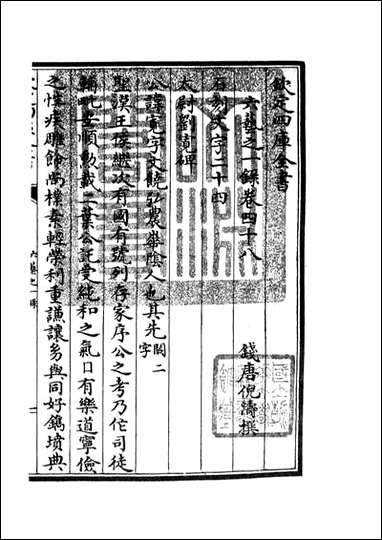 欽定四庫全書
六藝之一錄卷四十八
錢唐倪濤撰
石刻文字二十四
太尉劉寛碑
公諱寛字文饒弘農華陰人也其先闕二字
聖漢王侯繼次有國有號列存家序公之考乃作司徒
輔毗安順勲載二葉公託受純和之氣口有樂道寧儉
之性疾雕飾尚樸素輕榮利重謙讓多與同好鐫墳典
六藝之一錄
一